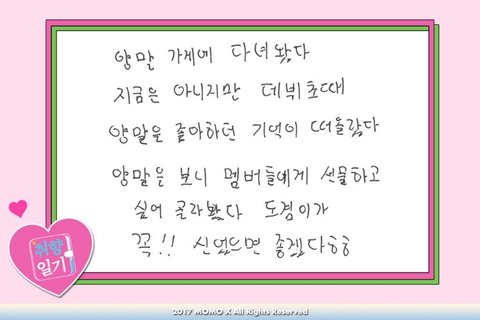 양말 가게에 다녀왔다
지금은 아니지만 데뷔초때
양말을 좋아하던 기억이 떠올랐다
양말을 보니 멤버들에게 선물하고
싶어 골라봤다 도경이가
꼭!! 신었으면 좋겠다ㅎㅎ
취향
일기
2017 MOMO X All Rights Reserved